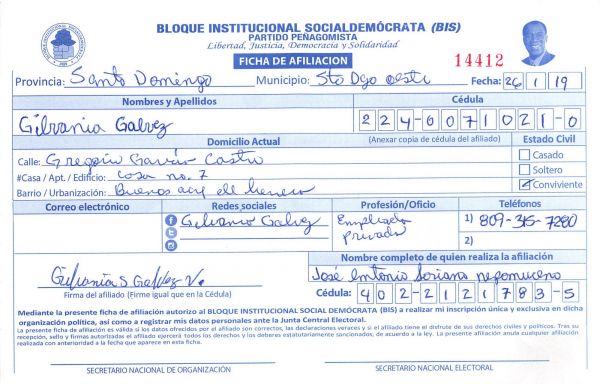 BLOQUE INSTITUCIONAL SOCIALDEMÓCRATA (BIS)
PARTIDO PEÑAGOMISTA
Libertad, Justicia, Democracia y Solidaridad
FICHA DE AFILIACION
14412
Provincia: Santo Domingo Municipio: Sto Dgo oeste Fecha: 26 1 19
Nombres y Apellidos Cédula
Gilvania Galvez 224-0071021-0
Domicilio Actual (Anexar copia de cédula del afiliado) Estado Civil
Calle: Gregorio García Castro Casado
#Casa / Apt. / Edificio: casa no. 7 Soltero
Barrio / Urbanización: Buenos del Conviviente
Correo electrónico Redes sociales Profesión/Oficio Teléfonos
Gilvania Galvez Empleada privada 1) 809-315-7280
2)
Gilvania S Galvez V.
Firma del afiliado (Firme igual que en la Cédula)
Nombre completo de quien realiza la afiliación
José Antonio Soriano nepomuceno
Cédula: 402-2121783-5
Mediante la presente ficha de afiliación autorizo al BLOQUE INSTITUCIONAL SOCIAL DEMÓCRATA (BIS) a realizar mi inscripción única y exclusiva en dicha
organización política, así como a registrar mis datos personales ante la Junta Central Electoral.
La presente ficha de afiliación es válida si los datos ofrecidos por el afiliado son correctos, las declaraciones veraces y si el afiliado tiene el disfrute de sus derechos civiles y políticos. Tras su
recepción, sello y firmas autorizadas el afiliado ejercerá todos los derechos y los deberes estatutariamente sancionados, de acuerdo a la ley. La presente afiliación anula cualquier afiliación
realizada con anterioridad a la fecha que aparece en esta ficha.
SECRETARIO NACIONAL DE ORGANIZACIÓN SECRETARIO NACIONAL ELECTORAL